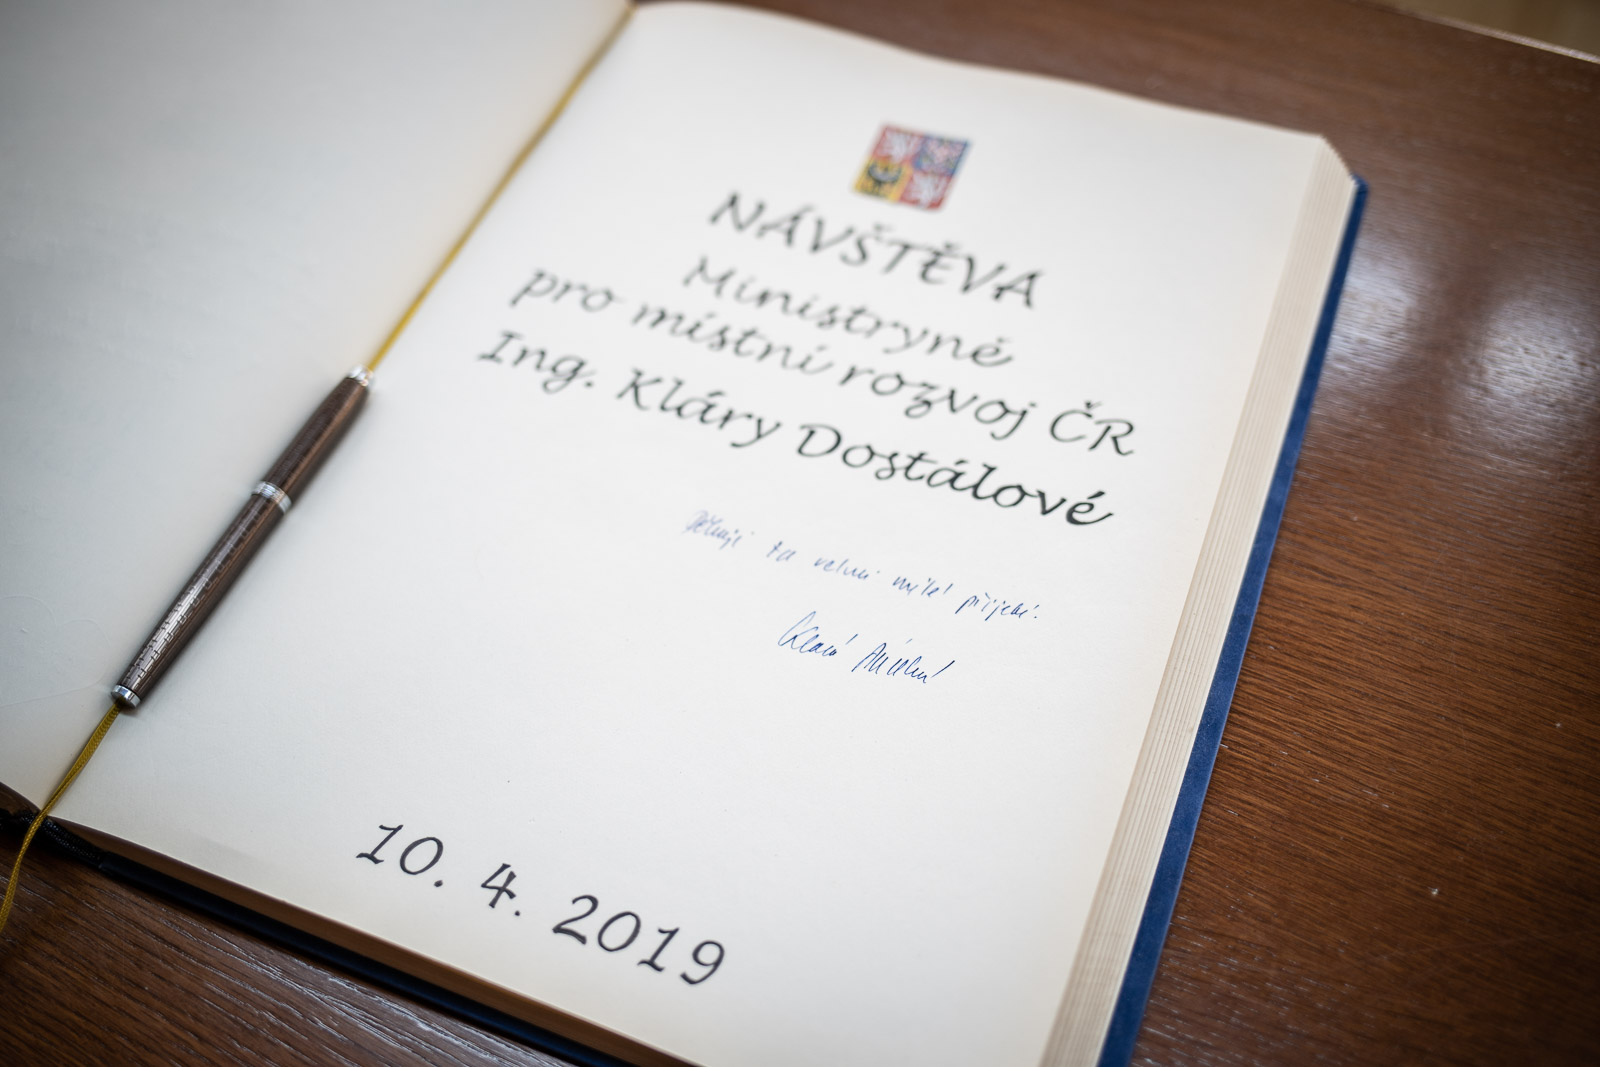 NÁVŠTĚVA
Ministryně
pro místní rozvoj ČR
Ing. Kláry Dostálové
Děkuji za velmi milé přijetí.
10. 4. 2019